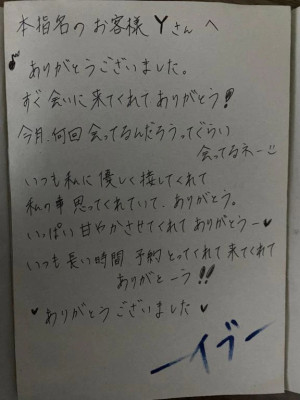 本指名のお客様Yさんへ
♪ありがとうございました。
すぐ会いに来てくれてありがとう!
今月、何回会ってるんだろうってぐらい
会ってるネー☺
いつも私に優しく接してくれて
私の事思ってくれていて、ありがとう。
いっぱい甘やかさせてくれてありがとうー♥
いつも長い時間予約とってくれて来てくれて
ありがとーう!!
♥ありがとうございました♥
ーイブー